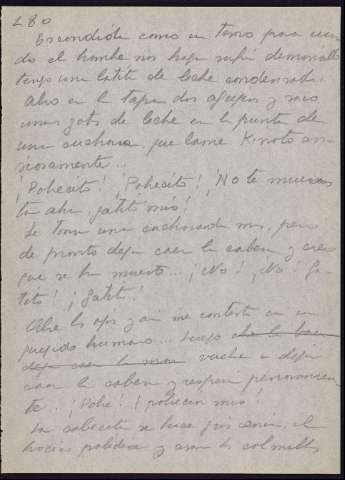 280
Escondido como un tesoro para cuan
do el hambre nos haga sufrir demasiado
tengo una latita de leche condensada.
Abro en la tapa dos agujeros y saco
unas gotas de leche en la punta de
una cuchara, que lame Kinoto an
siosamente...
¡Pobecito! ¡Pobecito! ¡No te mueras
tu ahi gatito mio!
Le toma una cucharada mas, pero
de pronto deja caer la cabeza y creo
que se ha muerto... ¡No! ¡No! Ga-
tito! ¡Gatito!
Abre los ojos y asi me contesta en un
quejido humano... Luego
vuelve a dejar
caer la cabeza y respira penosamen
te... ¡Pobe! ¡pobecin mio!
La cabecita se hace gris ceniza, el
hocico palidece y asoman los colmillos